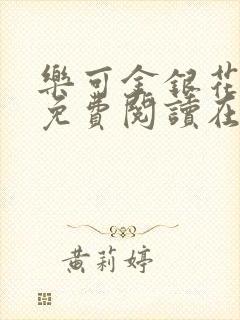 樂可金銀花
免費閱讀在
黃莉婷